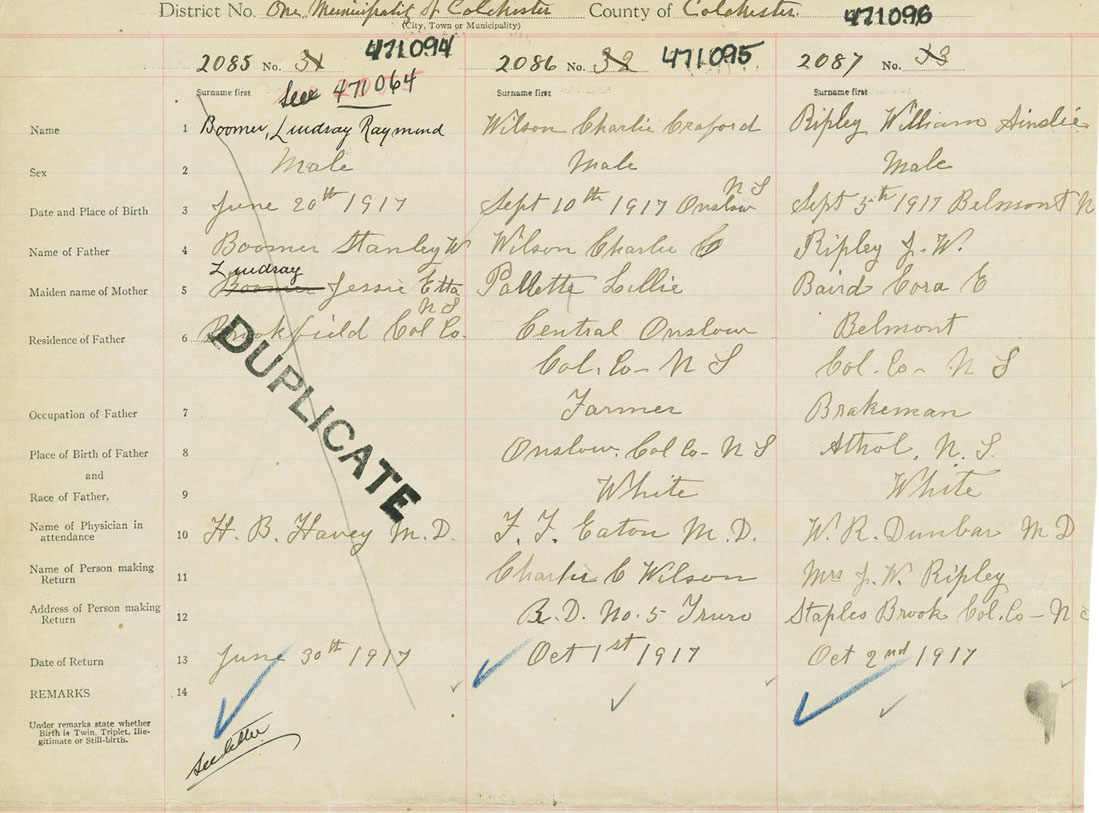 District No. One Municipality of Colchester County of Colchester.
(City, Town or Municipality)
471096
2085 No. 31 471094 2086 No. 32 471095 2087 No. 33
Surname first See 471064 Surname first Surname first
Name 1 Boomer, Lindsay Raymond Wilson Charlie Craford Ripley William Ainslie
Sex 2 Male Male Male
Date and Place of Birth 3 June 20th 1917 Sept 10th 1917 Onslow N S Sept 5th 1917 Belmont N
Name of Father 4 Boomer Stanley W Wilson Charlie C Ripley J. W.
Maiden name of Mother 5 Boomer Lindsay Jessie Etta Pallette Lillie Baird Cora E
Residence of Father 6 Brookfield Col Co. N S Central Onslow Belmont
Col. Co- N S Col. Co- N S
Occupation of Father 7 Farmer Brakeman
Place of Birth of Father 8 Onslow. Col Co- N S Athol, N. S.
and
Race of Father. 9 White White
Name of Physician in attendance 10 H. B. Havey M. D. F. F. Eaton M. D. W. R. Dunbar M D
Name of Person making Return 11 Charlie C Wilson Mrs J. W. Ripley
Address of Person making Return 12 R. D. No. 5 Truro Staples Brook Col. Co- N
Date of Return 13 June 30th 1917 Oct 1st 1917 Oct 2nd 1917
REMARKS 14
Under remarks state whether
Birth is Twin, Triplet, Ille-
gitimate or Still-birth.
See letter
DUPLICATE